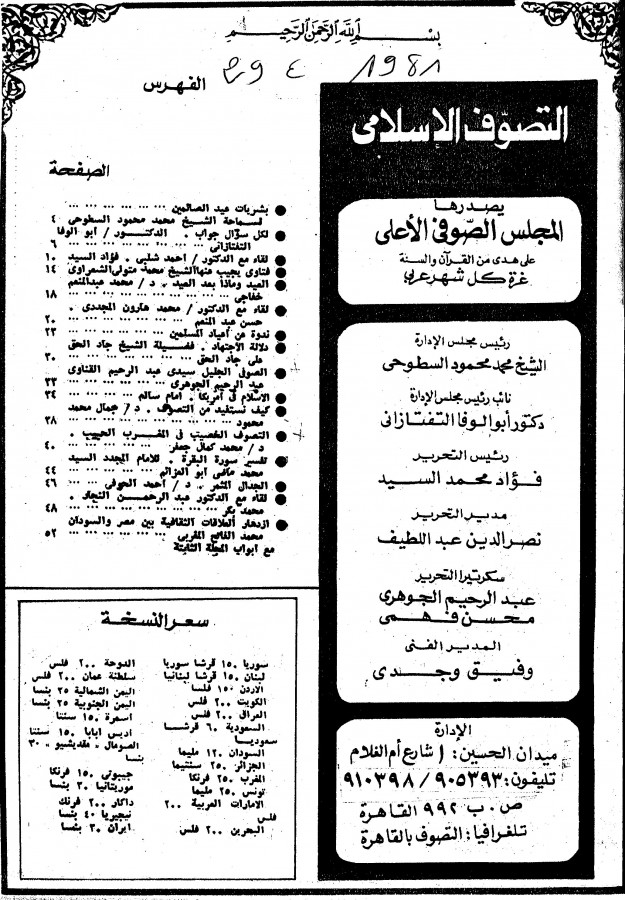 بسم الله الرحمن الرحيم
1981
التصوف الإسلامى
يصدرها
المجلس الصوفى الأعلى
على هدى من القرآن والسنة
غرة كل شهر عربى
رئيس مجلس الإدارة
الشيخ محمد محمود السطوحى
نائب رئيس مجلس الإدارة
دكتور أبو الوفا التفتازانى
رئيس التحرير
فؤاد محمد السيد
مدير التحرير
نصر الدين عبد اللطيف
سكرتيرا التحرير
عبد الرحيم الجوهرى
محسن فهمى
المدير الفنى
وفيق وجدى
الإدارة
ميدان الحسين: ١ شارع أم الغلام
تليفون: ٩٠٥٣٩٣ / ٩١٠٣٩٨
ص.ب ٩٩٢ القاهرة
تلغرافيا: التصوف بالقاهرة
الفهرس
الصفحة
● بشريات عيد الصالحين ... ... ... ... ... ...
لسماحة الشيخ محمد محمود السطوحى ٤
● لكل سؤال جواب . الدكتور / أبو الوفا
التفتازانى ... ... ... ... ... ... ٦
● لقاء مع الدكتور / أحمد شلبى . فؤاد السيد ١٠
● فتاوى يجيب عنها الشيخ محمد متولى الشعراوى ١٤
● العيد وماذا بعد العيد . د / محمد عبد المنعم
خفاجى ... ... ... ... ... ... ١٨
● لقاء مع الدكتور / محمد هارون المجددى .
حسن عبد المنعم ... ... ... ... ٢٠
● ندوة عن أعياد المسلمين ... ... ... ... ٢٣
● دلالة الاجتهاد . فضيلة الشيخ جاد الحق
على جاد الحق ... ... ... ... ... ٣٠
● الصوفى الجليل سيدى عبد الرحيم القناوى
عبد الرحيم الجوهرى ... ... ... ... ٣٣
● الاسلام فى أمريكا . امام سالم ... ... ... ٣٤
● كيف نستفيد من التصوف . د / جمال محمد
محمود ... ... ... ... ... ... ٣٨
● التصوف الخصيب فى المغرب الحبيب .
د / محمد كمال جعفر ... ... ... ... ٤٠
● تفسير سورة البقرة . للامام المجدد السيد
محمد ماضى أبو العزائم ... ... ... ٤٤
● الجدال المثمر . د / أحمد الحوفى ... ... ٤٦
● لقاء مع الدكتور عبد الرحمن النجار .
محمد بكر ... ... ... ... ... ... ٤٨
● ازدهار العلاقات الثقافية بين مصر والسودان
محمد الفاتح المقربى ... ... ... ... ٥٢
مع أبواب المجلة الثابتة
سعر النسخة
سوريا ١٥٠ قرشا سوريا
لبنان ١٥٠ قرشا لبنانيا
الأردن ١٥٠ فلسا
الكويت ٢٠٠ فلس
العراق ٢٠٠ فلس
السعودية ٦٠ قرشا
سعوديا
السودان ١٢٠ مليما
الجزائر ٢٥٠ سنتيما
المغرب ٢٥٠ فرنكا
تونس ٢٥٠ مليما
الامارات العربية ٢٠٠
فلس
البحرين ٢٠٠ فلس
الدوحة ٢٠٠ فلس
سلطنة عمان ٢٠٠ فلس
اليمن الشمالية ٢٥ بنسا
اليمن الجنوبية ٢٥ بنسا
أسمرة ١٥٠ سنتا
أديس أبابا ١٥٠ سنتا
الصومال . مقديشيو ٣٠
بنسا
جيبوتى ١٥٠ فرنكا
موريتانيا ٣٠ بنسا
داكار ٢٠٠ فرنك
نيجيريا ٤٠ بنسا
ايران ٣٠ بنسا